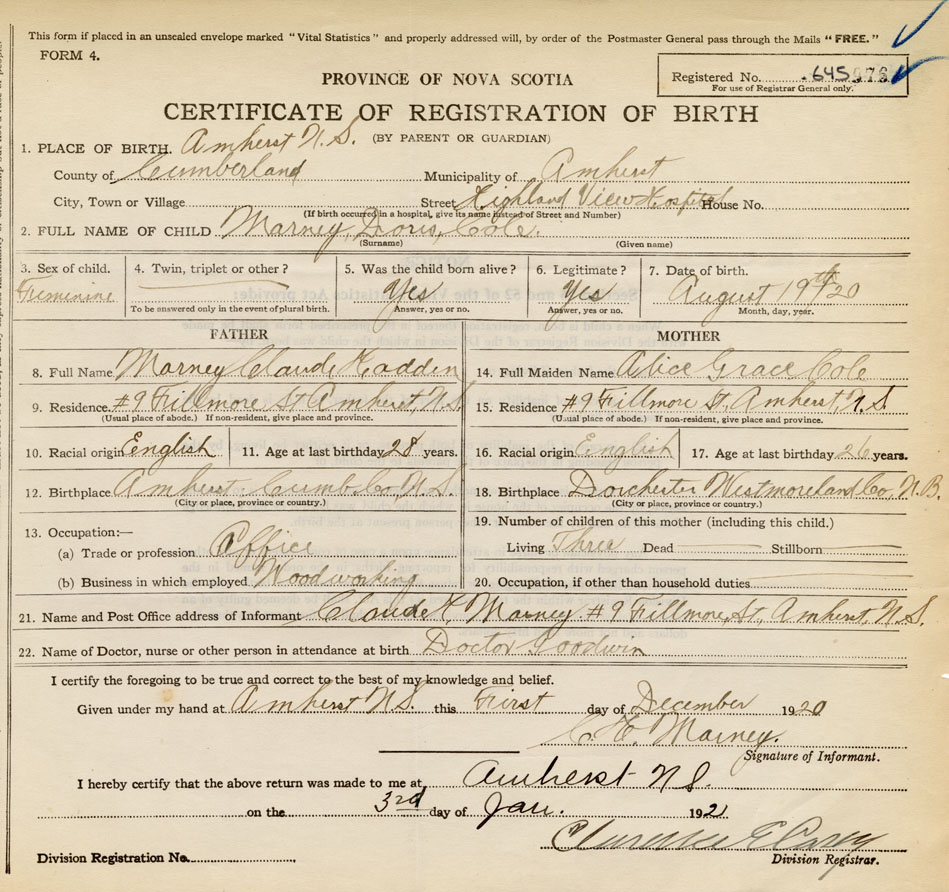 This form if placed in an unsealed envelope marked "Vital Statistics" and properly addressed will, by order of the Postmaster General pass through the Mails "FREE."
FORM 4.
PROVINCE OF NOVA SCOTIA
Registered No. 645
For use of Registrar General only.
CERTIFICATE OF REGISTRATION OF BIRTH
(BY PARENT OR GUARDIAN)
1. PLACE OF BIRTH. Amherst N.S.
County of Cumberland Municipality of Amherst
City, Town or Village Street Highland View Hospital House No.
(If birth occurred in a hospital, give its name instead of Street and Number)
2. FULL NAME OF CHILD Marney, Doris, Cole.
(Surname) (Given name)
3. Sex of child. 4. Twin, triplet or other? 5. Was the child born alive? 6. Legitimate? 7. Date of birth.
Feminine Yes Yes August 19th 20
To be answered only in the event of plural birth. Answer, yes or no. Answer, yes or no. Month, day, year.
FATHER MOTHER
8. Full Name Marney Claude Hadden 14. Full Maiden Name Alice Grace Cole
9. Residence. #9 Fillmore St Amherst, N.S. 15. Residence #9 Fillmore St, Amherst, N.S
(Usual place of abode.) If non-resident, give place and province. (Usual place of abode.) If non-resident, give place and province.
10. Racial origin English 11. Age at last birthday 28 years. 16. Racial origin English 17. Age at last birthday 26 years.
12. Birthplace Amherst Cumb. Co, N.S. 18. Birthplace Dorchester Westmoreland Co, N.B.
(City or place, province or country.) (City or place, province or country.)
13. Occupation:— 19. Number of children of this mother (including this child.)
(a) Trade or profession Office Living Three Dead Stillborn
(b) Business in which employed Woodworking 20. Occupation, if other than household duties
21. Name and Post Office address of Informant Claude H. Marney. #9 Fillmore, St., Amherst, N.S.
22. Name of Doctor, nurse or other person in attendance at birth Doctor Goodwin
I certify the foregoing to be true and correct to the best of my knowledge and belief.
Given under my hand at Amherst N.S. this First day of December 1920
C. H. Marney.
Signature of Informant.
I hereby certify that the above return was made to me at Amherst N.S.
on the 3rd day of Jan. 1921
Clarence E
Division Registration No. Division Registrar.